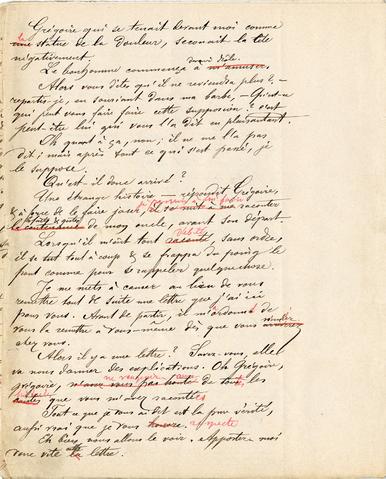 Grégoire qui se tenait devant moi comme
la statue de la douleur, secouait la tête
négativement.
Le bonhomme commença à devenir drôle.
Alors vous dites qu'il ne reviendra plus ! –
repartis-je, en souriant dans ma barbe, – Qu'est-ce
qui peut vous faire faire cette supposition ? c'est
peut-être lui qui vous l'a dit en plaisantant.
Oh quant à ça, non ; il ne me l'a pas
dit ; mais après tout ce qui s'est passé, je
le suppose.
Qu'est-il donc arrivé ?
Une étrange histoire – répondit Grégoire,
& à force de le faire jaser, je parvins à
de mon oncle, avant son départ.
Lorsqu'il m'eût tout débité, sans ordre,
il se tut tout à coup & se frappa du poing le
front comme pour se rappeler quelquechose.
Je me mets à causer au lieu de vous
remettre tout de suite une lettre que j'ai ici
pour vous. Avant de partir, il m'a ordonné de
vous la remettre à vous-même dès que vous
chez vous.
Alors il y a une lettre ? Savez-vous, elle
va nous donner des explications. Oh Grégoire,
Grégoire, de les
que vous m'avez racontées
Tout ce que je vous ai dit est la pure vérité,
aussi vrai que je vous respecte
Eh bien, nous allons le voir. Apportez-moi
donc vite cette lettre.